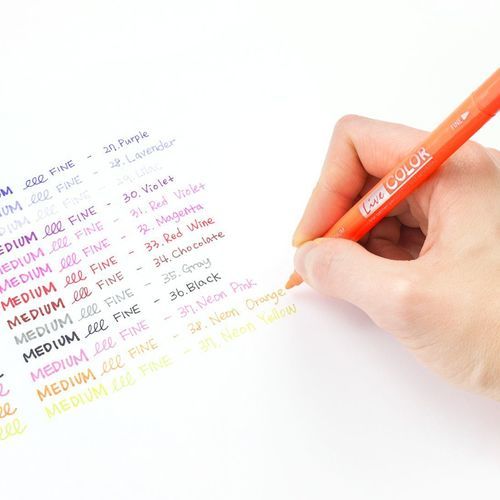 UM lll FINE - 27. Purple
lll FINE - 28. Lavender
lll FINE - 29. Lilac
MEDIUM lll FINE - 30. Violet
MEDIUM lll FINE - 31. Red Violet
MEDIUM lll FINE - 32. Magenta
MEDIUM lll FINE - 33. Red Wine
MEDIUM lll FINE - 34. Chocolate
MEDIUM lll FINE - 35. Gray
MEDIUM lll FINE - 36. Black
MEDIUM lll FINE - 37. Neon Pink
MEDIUM lll FINE - 38. Neon Orange
MEDIUM lll FINE - 39. Neon Yellow
Live COLOR
FINE